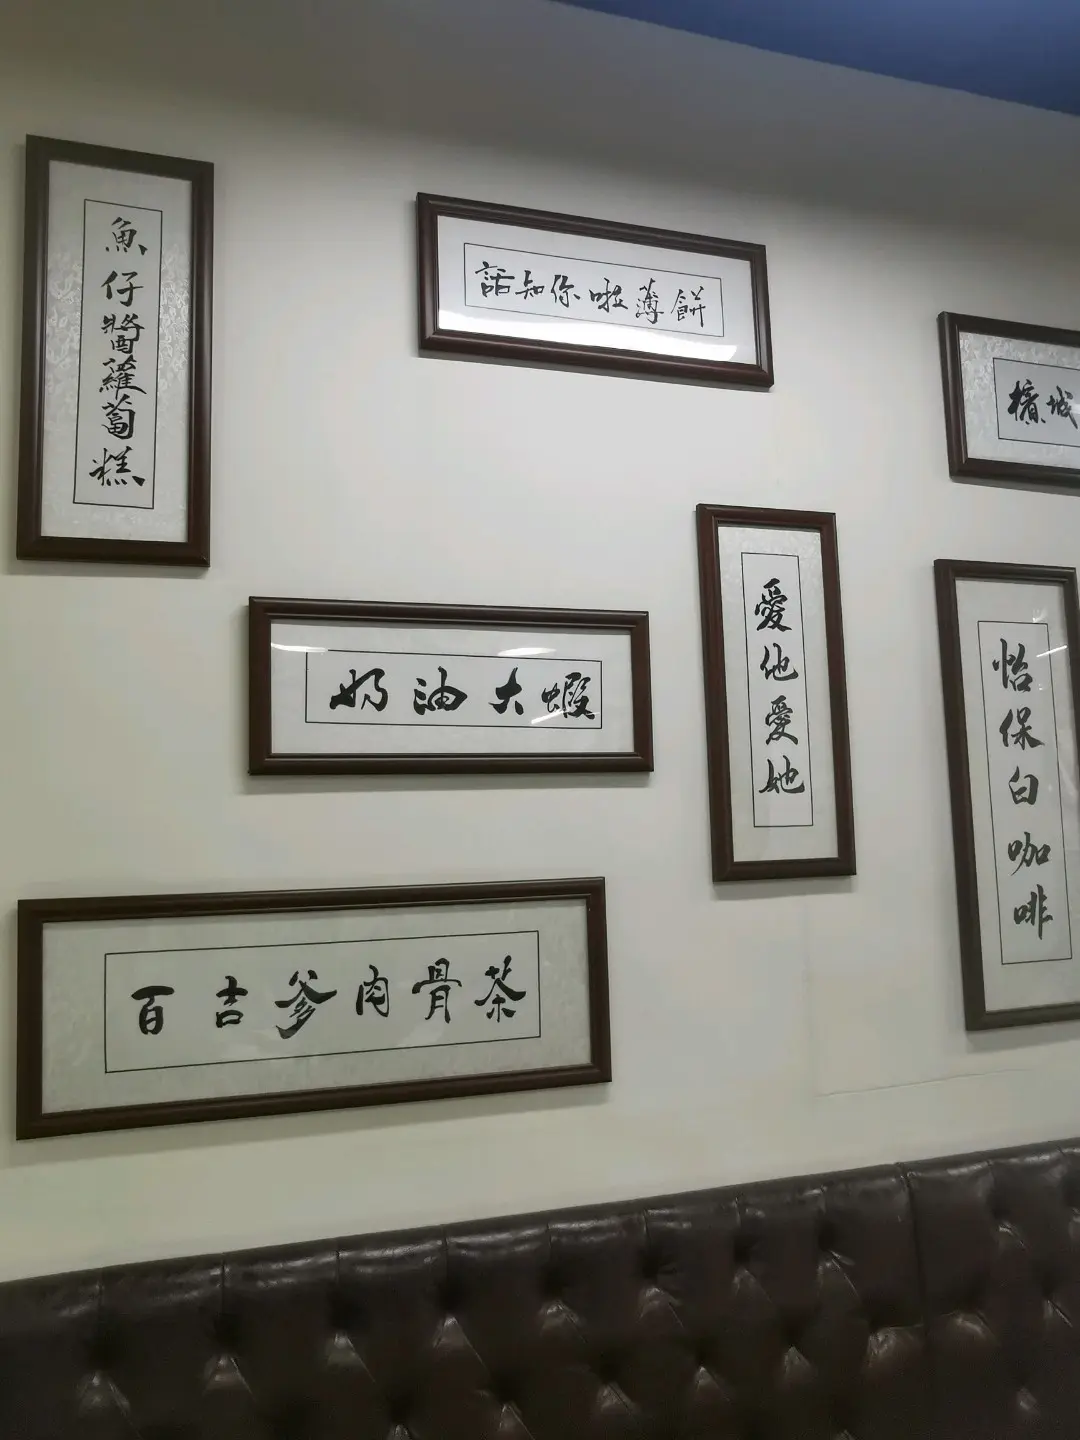 魚仔醬蘿蔔糕
話知你啦薄餅
檳城
奶油大蝦
愛他愛她
怡保白咖啡
百吉爹肉骨茶